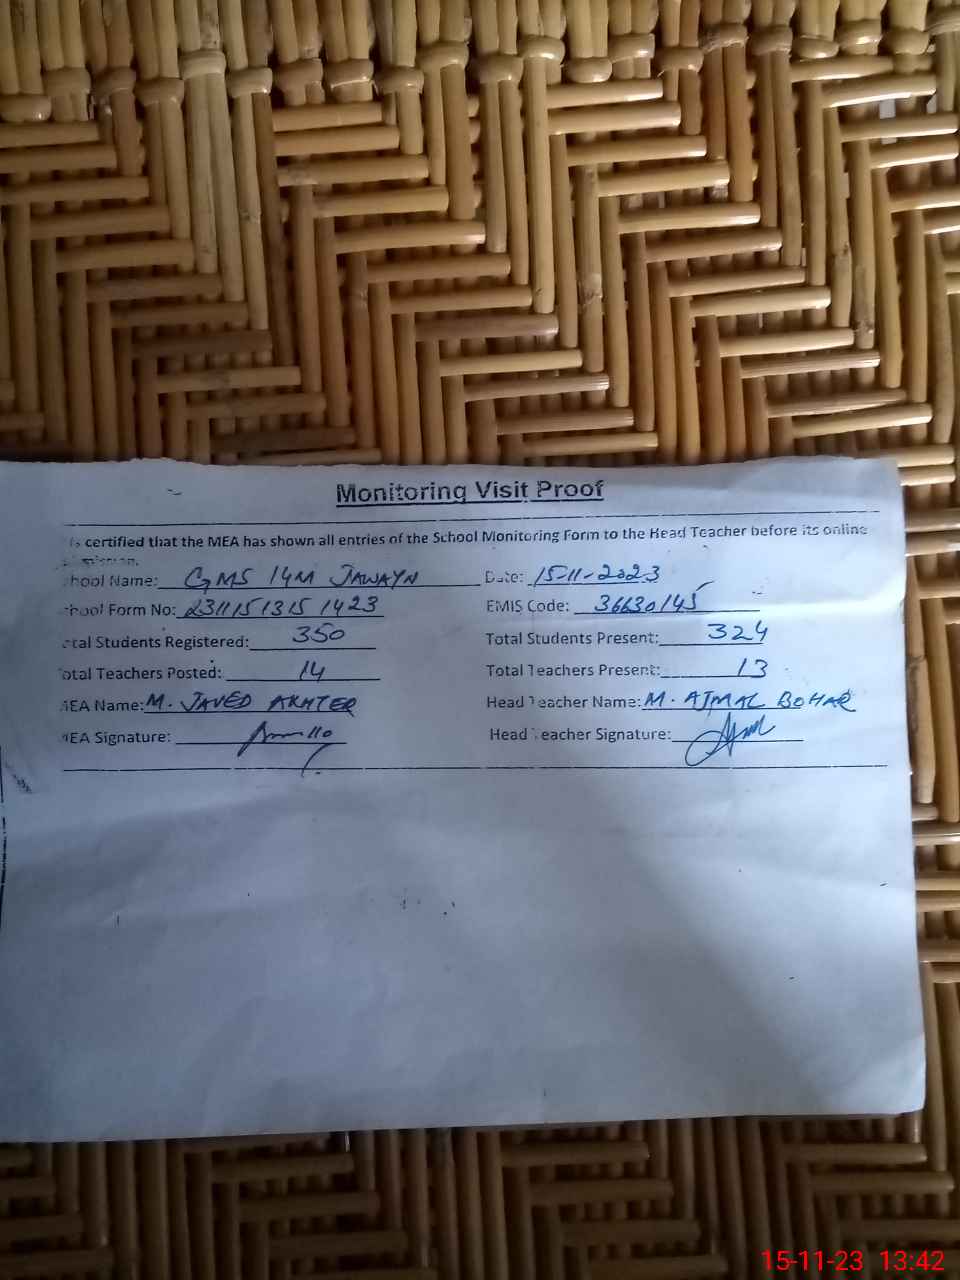 Monitoring Visit Proof
is certified that the MEA has shown all entries of the School Monitoring Form to the Head Teacher before its online
hool Name: GMS 14M JAWAYN Date: 15-11-2023
hool Form No: 23111513151423 EMIS Code: 36630145
tal Students Registered: 350 Total Students Present: 324
otal Teachers Posted: 14 Total Teachers Present: 13
MEA Name: M. JAVED AKHTER Head Teacher Name: M. AJMAL BOHAR
MEA Signature: Head Teacher Signature:
15-11-23 13:42